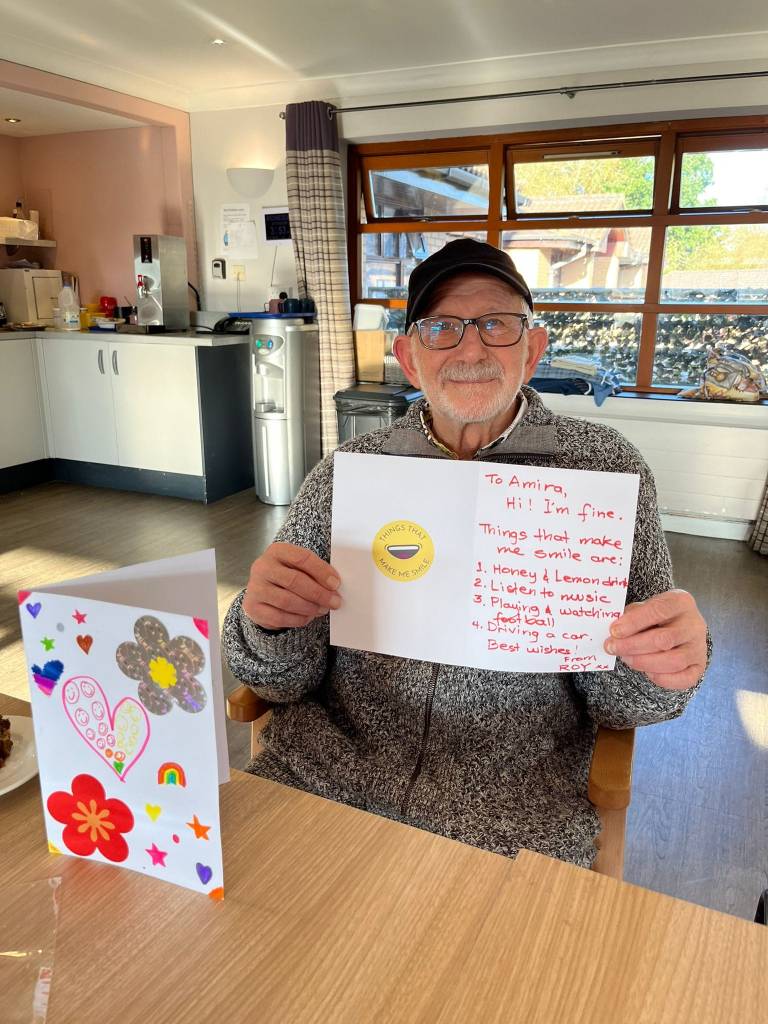 THINGS THAT
MAKE ME SMILE
To Amira,
Hi! I'm fine.
Things that make
me smile are:
1. Honey & Lemon drink
2. Listen to music
3. Playing & watching
football
4. Driving a car.
Best wishes!
From
ROY xx